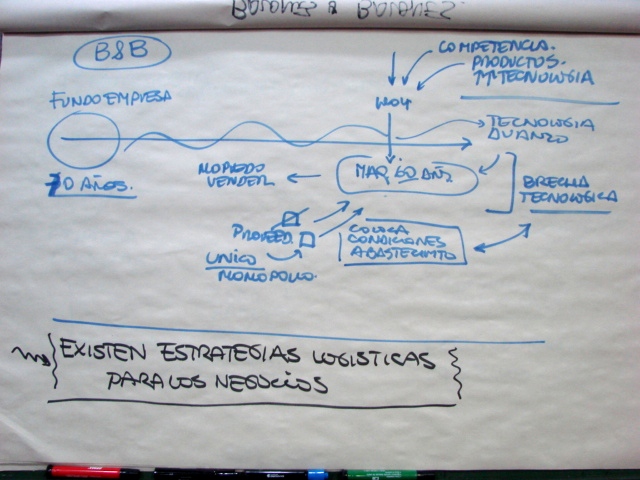 B&B
COMPETENCIA.
PRODUCTOS.
TECNOLOGIA
FUNDO EMPRESA
HOY
TECNOLOGIA
AVANZO
10 AÑOS.
NO PUEDO
VENDER
MAQ 60 AÑ
BRECHA
TECNOLOGICA
PROVEED.
UNICO
MONOPOLIO.
COLOCA
CONDICIONES
ABASTECIMTO
EXISTEN ESTRATEGIAS LOGISTICAS
PARA LOS NEGOCIOS